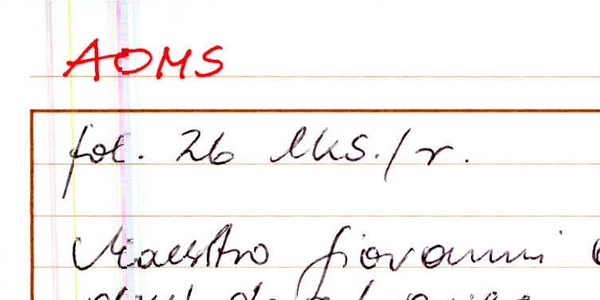 AOMS
fol. 26 lks./r.
Maestro Giovanni